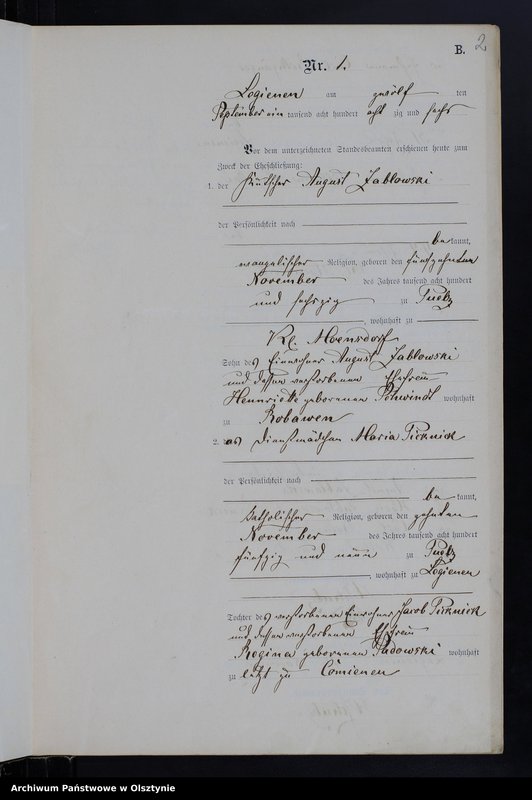 B. 2
Nr. 1.
Logienen am zwölf ten
September ein tausend acht hundert acht zig und sechs
Vor dem unterzeichneten Standesbeamten erschienen heute zum
Zweck der Eheschließung:
1. der Kutscher August Jablowski
der Persönlichkeit nach
be kannt,
evangelischer Religion, geboren den fünfzehnten
November des Jahres tausend acht hundert
und sechszig zu Puelz
, wohnhaft zu
Kl. Moensdorf
Sohn des Einwohner August Jablowski
und dessen verstorbenen Ehefrau
Henriette geborenen Schwindt wohnhaft
zu Robawen
2. das Dienstmädchen Maria Picknick
der Persönlichkeit nach
be kannt,
katholischer Religion, geboren den zehnten
November des Jahres tausend acht hundert
fünfzig und neun zu Puelz
, wohnhaft zu Logienen
Tochter des verstorbenen Einwohner Jacob Picknick
und dessen verstorbenen Ehefrau
Regina geborenen Sadowski wohnhaft
zu letzt zu Cömienen
Archiwum Państwowe w Olsztynie